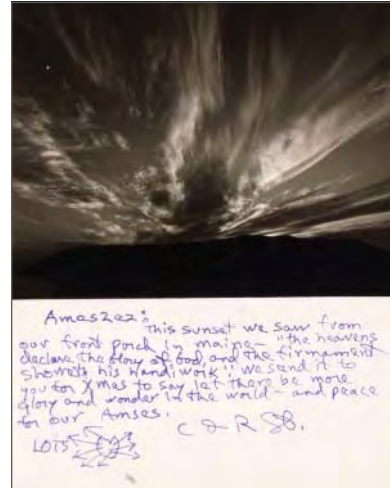 Ameszez:
This sunset we saw from
our front porch in maine- "the heavens
declare the glory of God, and the firmament
showeth his handiwork". We send it to
you for Xmas to say let there be more
glory and wonder in the world - and peace
for our Amses.
C & R SB.
LOTS